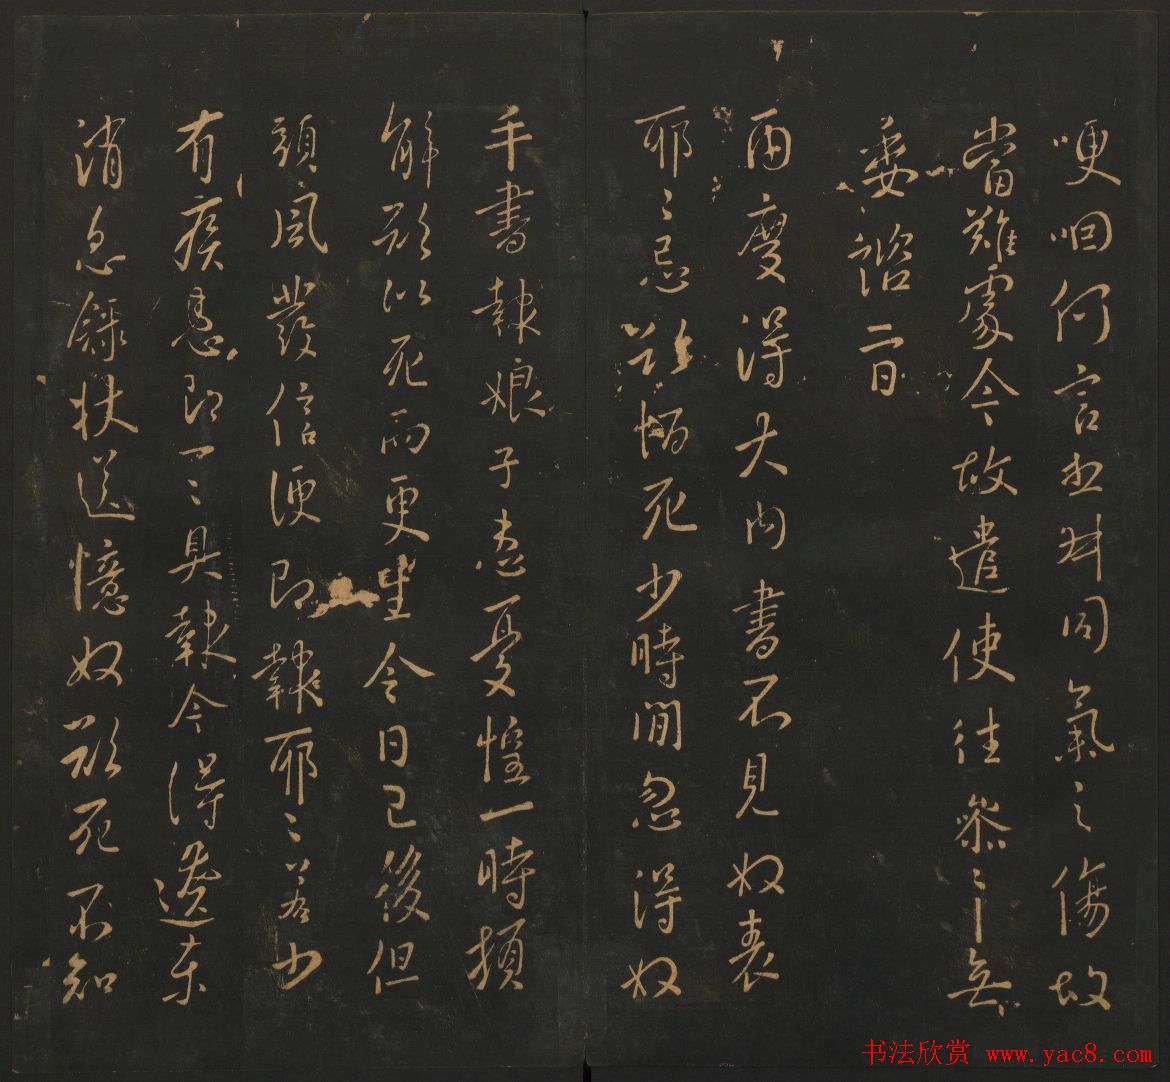 哽咽何言同氣之傷故
當難處今故遣使往參無
委諮二日
兩度得大內書不見奴表
耶耶忌欲恆死少時間忽得奴
手書報娘子患憂惶一時頓
解欲似死而更生今日已後但
頭風發信便即報耶耶若少
有疾患即一一具報今得遼東
消息錄狀送憶奴欲死不知
书法欣赏 www.yac8.com